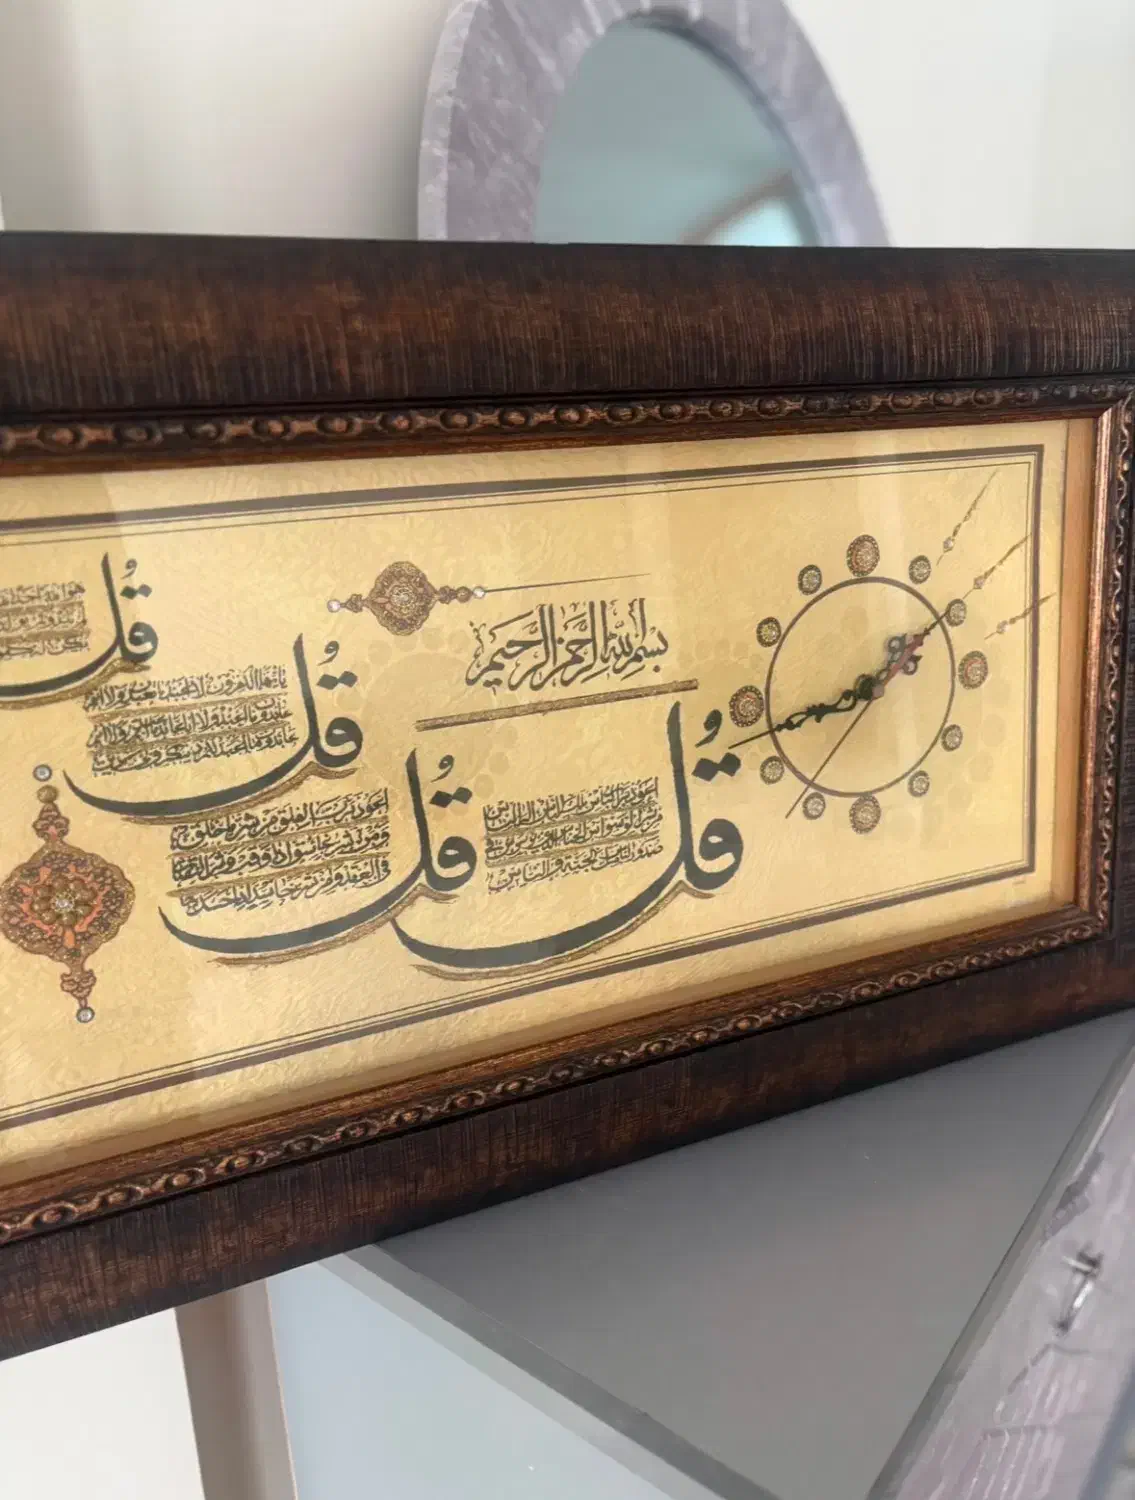 بسم الله الرحمن الرحيم
قل
اعوذ برب الناس ملك الناس اله الناس
من شر الوسواس الخناس الذي يوسوس في
صدور الناس من الجنة و الناس
قل
اعوذ برب الفلق من شر ما خلق
و من شر غاسق اذا وقب و من شر النفاثات
في العقد و من شر حاسد اذا حسد
قل
يا ايها الكافرون لا اعبد ما تعبدون و لا انتم
عابدون ما اعبد و لا انا عابد ما عبدتم و لا انتم
عابدون ما اعبد لكم دينكم و لي دين
قل
هو الله احد